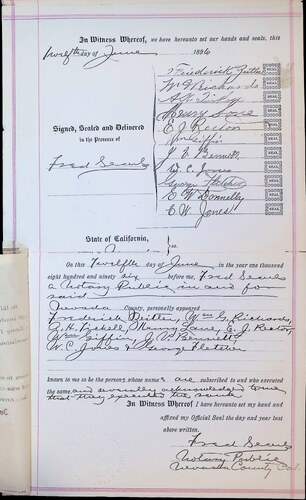 In Witness Whereof, we have hereunto set our hands and seals, this
twelfth day of June 1896
Frederick
W G Richards
SEAL
SEAL
Henry Lane
SEAL
E. J. Rector
SEAL
Signed, Sealed and Delivered
Wm Giffin
SEAL
in the Presence of
J. V. Bennett
SEAL
Fred Searls
W. C. Jones
SEAL
George Fletcher
SEAL
E W Donnelly
SEAL
E W Jones
SEAL
State of California,
On this Twelfth day of June in the year one thousand
eight hundred and ninety six before me, Fred Searls
a Notary Public in and for
said
Nevada County, personally appeared
Frederick Wm G. Richards,
A. H. Tickell, Henry Lane, E. J. Rector,
Wm Giffin, J. V. Bennett
W. C. Jones & George Fletcher
known to me to be the persons whose names are subscribed to and who executed
the same, and severally acknowledged to me
that they executed the same.
In Witness Whereof I have hereunto set my hand and
affixed my Official Seal the day and year last
above written.
Fred Searls
Notary Public
Nevada County Cal